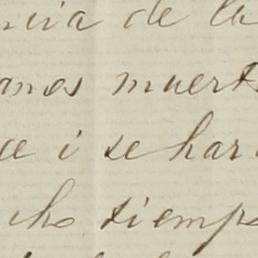 ncia de la
anos muert
ce i se har
cho tiemp